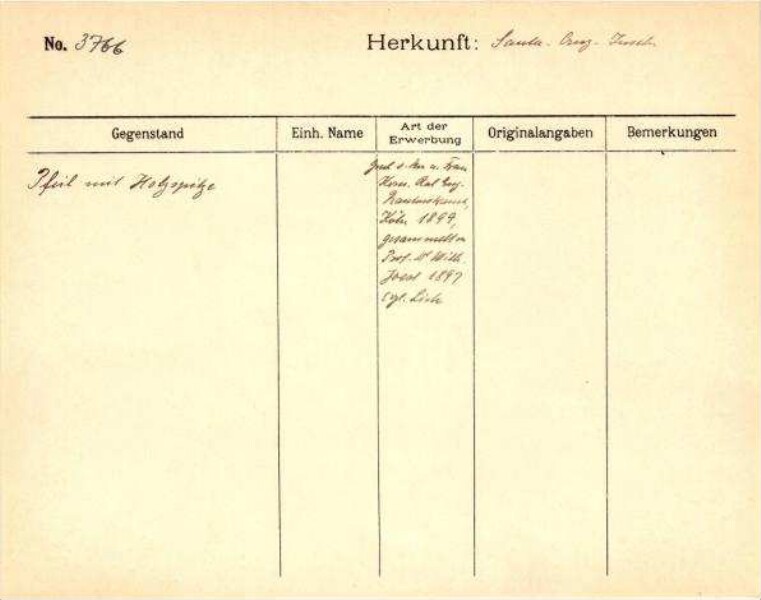 No. 3766
Herkunft: Santa-Cruz-Inseln
Gegenstand
Einh. Name
Art der
Erwerbung
Originalangaben
Bemerkungen
Pfeil mit Holzspitze
u. Frau
Kom. Rat Eug.
Rautenstrauch,
Köln 1899,
gesammelt v.
Prof. Dr Wilh.
Joest 1897